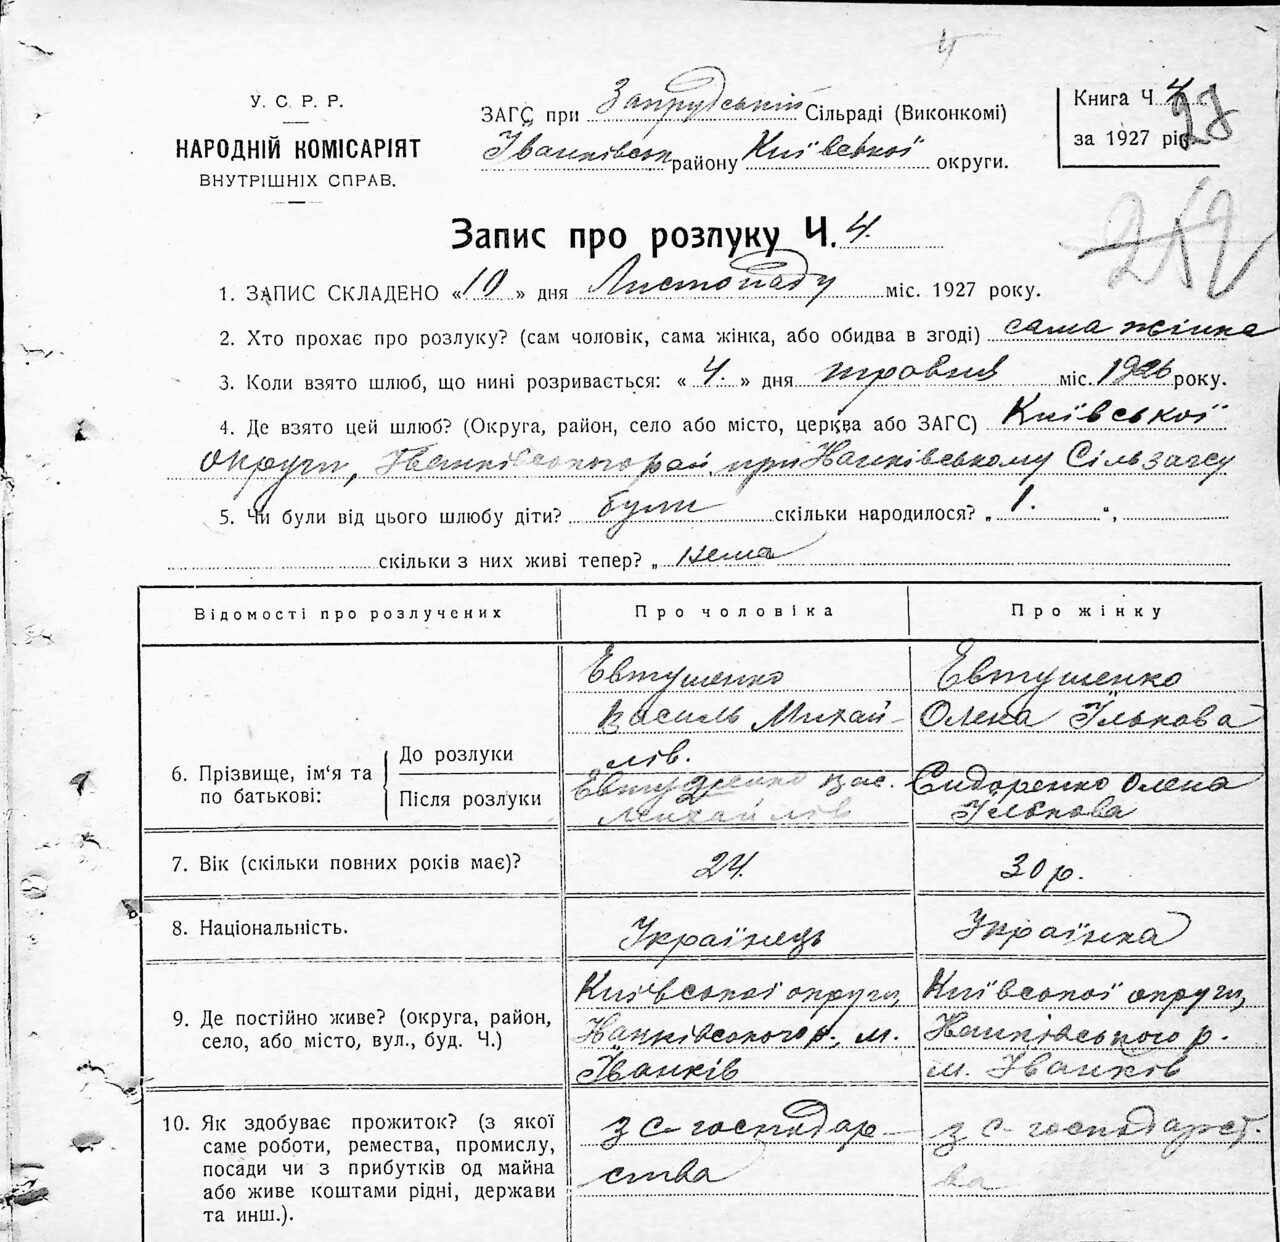 4
У. С. Р. Р.
НАРОДНІЙ КОМІСАРІЯТ
ВНУТРІШНІХ СПРАВ.
ЗАГС при Запрудській Сільраді (Виконкомі)
Іванківськ району Київської округи.
Книга Ч. 4
за 1927 рік.
27
212
Запис про розлуку Ч. 4.
1. ЗАПИС СКЛАДЕНО «10» дня Листопаду міс. 1927 року.
2. Хто прохає про розлуку? (сам чоловік, сама жінка, або обидва в згоді) сама жінка
3. Коли взято шлюб, що нині розривається: «4.» дня травня міс. 1926 року.
4. Де взято цей шлюб? (Округа, район, село або місто, церква або ЗАГС) Київської
округи, Іванківського рай. при Іванківському Сільзагсу
5. Чи були від цього шлюбу діти? були скільки народилося? „ 1. “,
скільки з них живі тепер? „ нема
Відомості про розлучених Про чоловіка Про жінку
6. Прізвище, ім'я та по батькові:
До розлуки
Евтушенко
Василь Михай-
лів.
Евтушенко
Олена Ількова
Після розлуки
Евтушенко Вас.
Михайлів
Сидоренко Олена
Ількова
7. Вік (скільки повних років має)? 24. 30 р.
8. Національність. Українець Українка
9. Де постійно живе? (округа, район,
село, або місто, вул., буд. Ч.)
Київської округи,
Іванківського р., м.
Іванків
Київської округи,
Іванківського р.
м. Іванків
10. Як здобуває прожиток? (з якої
саме роботи, ремества, промислу,
посади чи з прибутків од майна
або живе коштами рідні, держави
та инш.).
з с-господар-
ства
з с-господарст-
ва